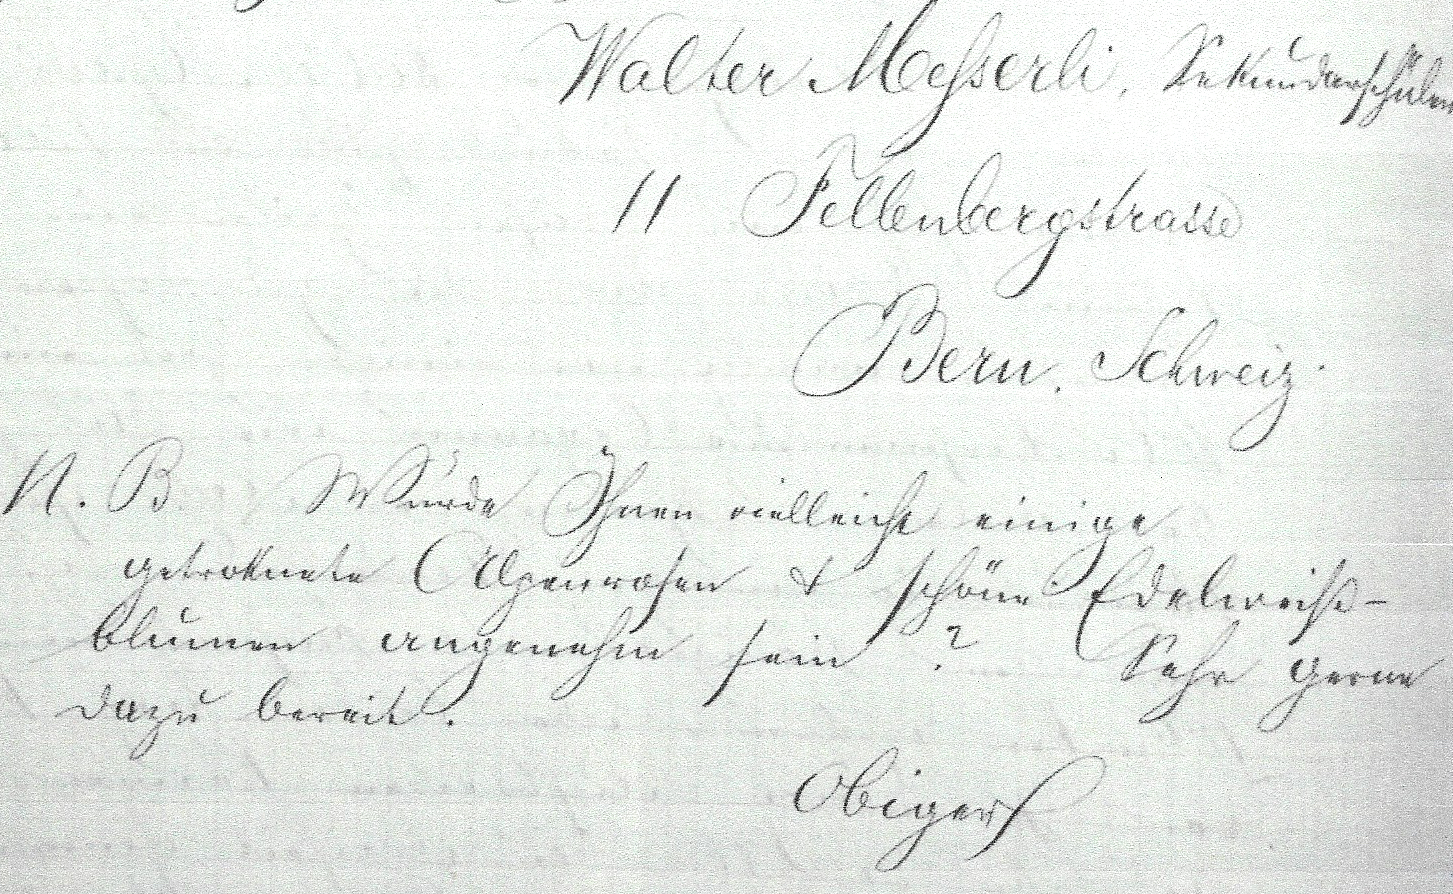 Walter Messerli, Sekundarschüler
11 Fellenbergstrasse
Bern. Schweiz.
N. B. Würde Ihnen vielleicht einige
getroknete Alpenrosen & schöne Edelweiß-
blumen angenehm sein? Sehr gerne
dazu bereit.
Obiger